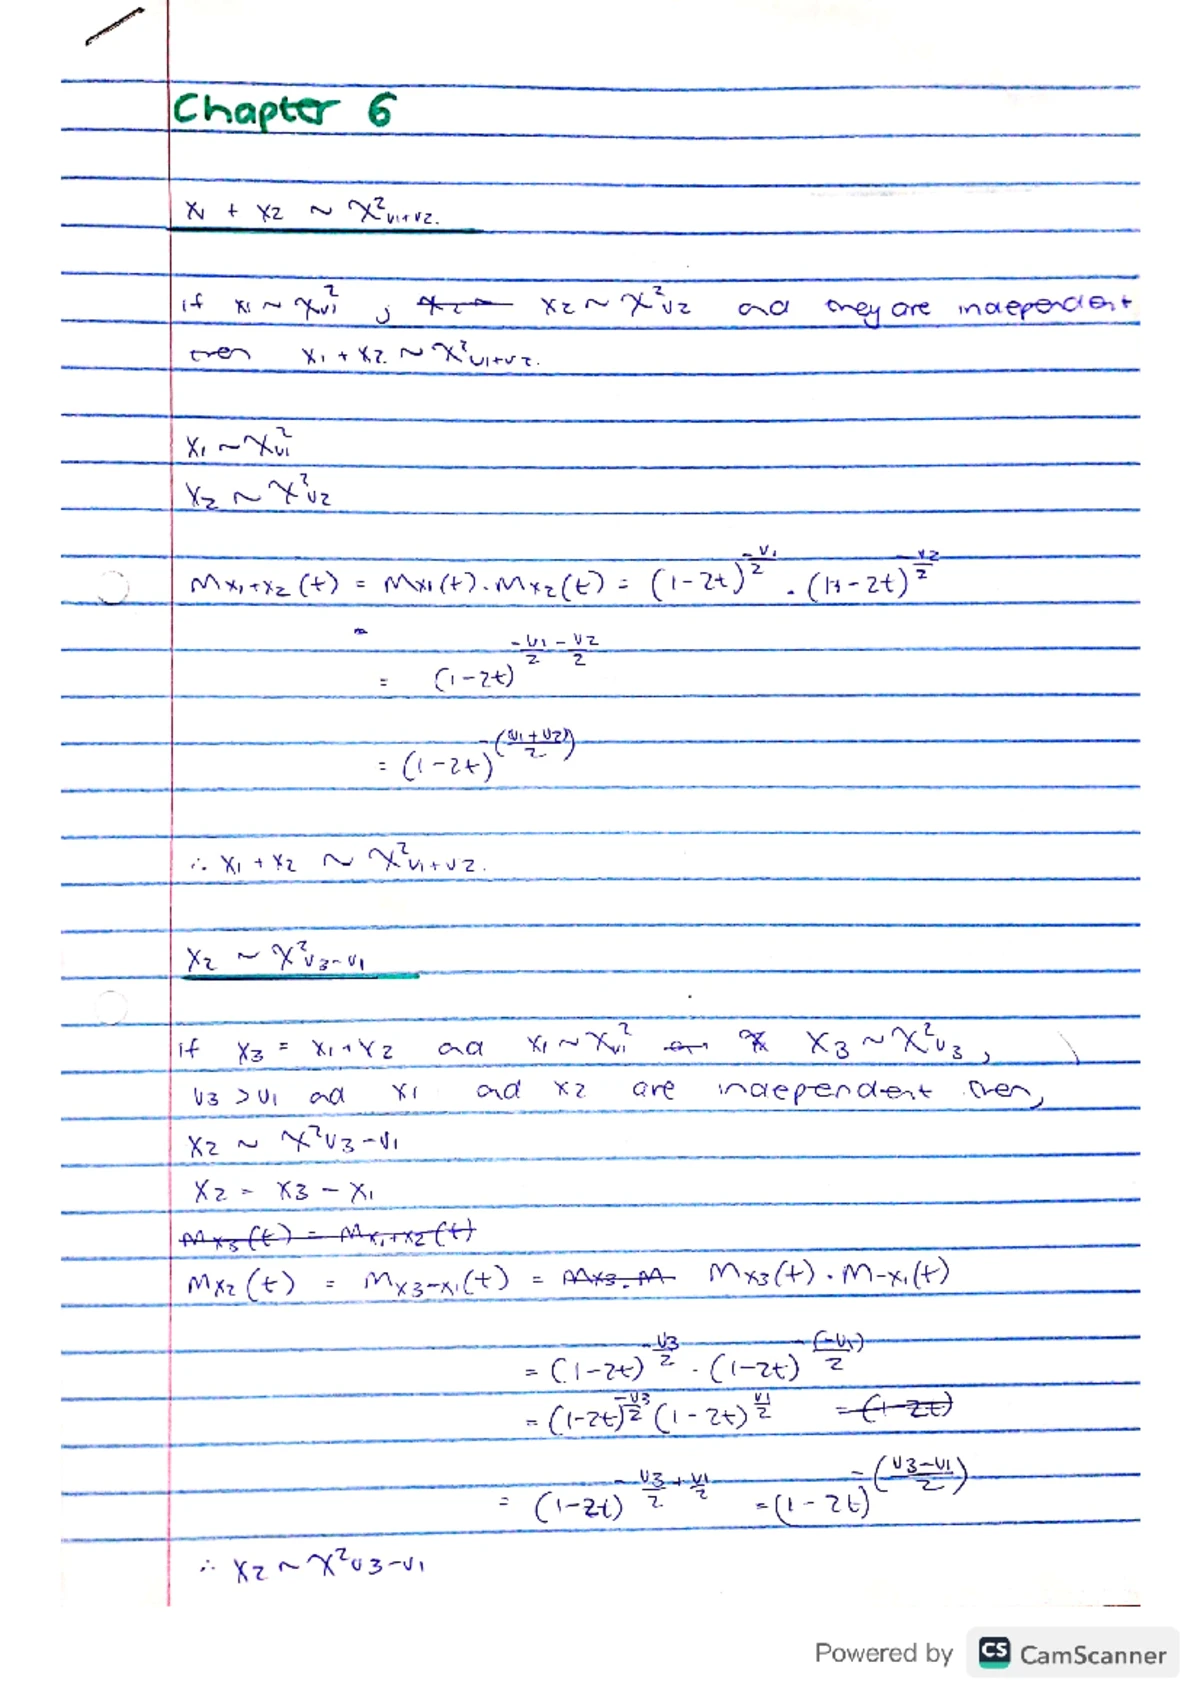 Chapter 6
X1 + X2 ~ χ²v1+v2.
if X1 ~ χ²v1 ; X2 ~ χ²v2 and they are independent
then X1 + X2 ~ χ²v1+v2.
X1 ~ χ²v1
X2 ~ χ²v2
Mx1+x2(t) = Mx1(t).Mx2(t) = (1-2t)^(-v1/2) . (1-2t)^(-v2/2)
= (1-2t)^(-v1/2 - v2/2)
= (1-2t)^-((v1+v2)/2)
∴ X1 + X2 ~ χ²v1+v2.
X2 ~ χ²v3-v1
if X3 = X1+X2 and X1 ~ χ²v1 X3 ~ χ²v3,
v3 > v1 and X1 and X2 are independent then,
X2 ~ χ²v3-v1
X2 = X3 - X1
Mx3(t) = Mx1+x2(t)
Mx2(t) = Mx3-x1(t) = Mx3.M Mx3(t).M-x1(t)
= (1-2t)^(-v3/2) . (1-2t)^(-(-v1)/2)
= (1-2t)^(-v3/2) (1-2t)^(v1/2) = (1-2t)
= (1-2t)^(-v3/2 + v1/2) = (1-2t)^-((v3-v1)/2)
∴ X2 ~ χ²v3-v1
Powered by CS CamScanner